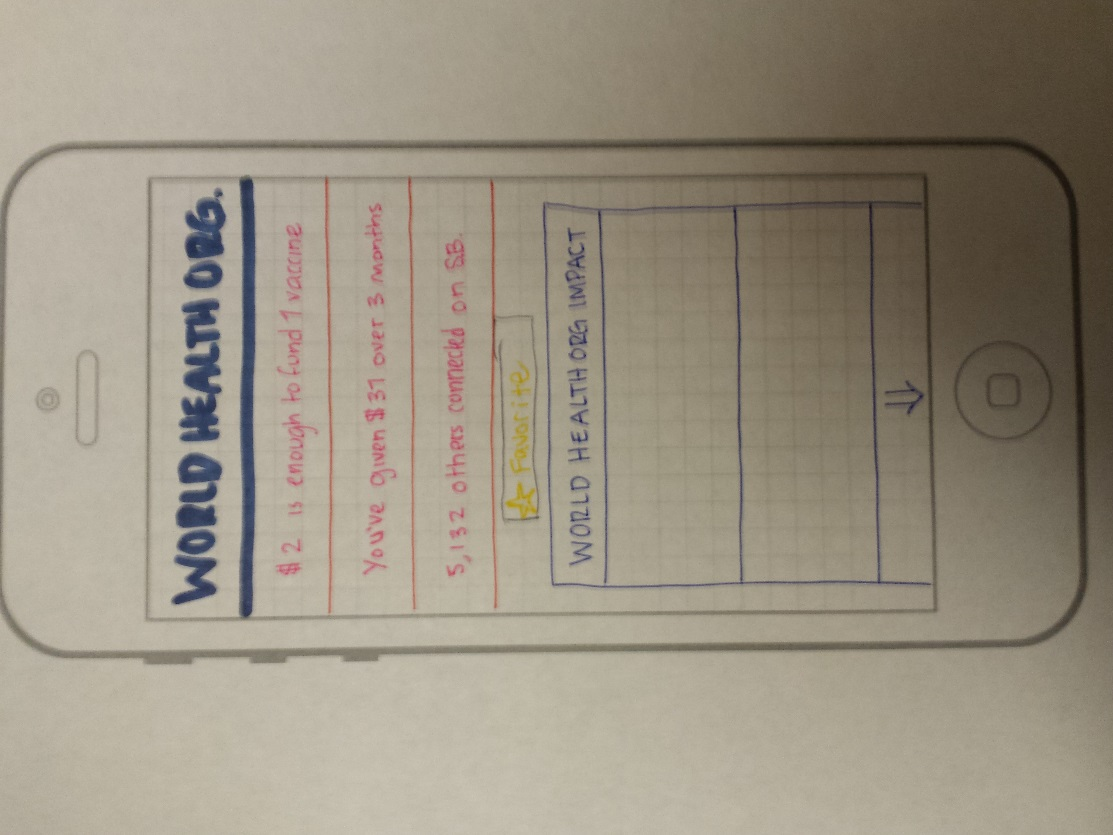 WORLD HEALTH ORG.
$2 is enough to fund 1 vaccine
You've given $31 over 3 months
5,132 others connected on SB.
Favorite
WORLD HEALTH ORG IMPACT